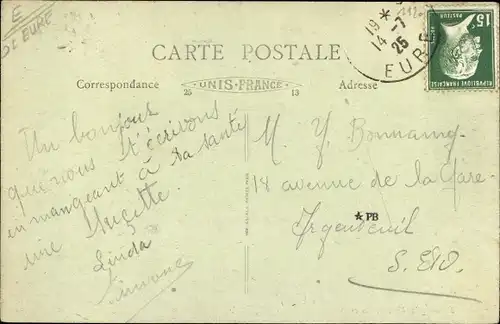 E
DE EURE
1120
19 *
14 -7
25
EURE
15c
PASTEUR
POSTES
REPUBLIQUE FRANÇAISE
CARTE POSTALE
Correspondance
UNIS-FRANCE
25
13
Adresse
Un bonjour
que nous t'écrivons
en mangeant à ta santé
une Sucette.
Linda
Simone
M Y.
14 avenue de la Gare
*PB
Argenteuil
S. ETO.